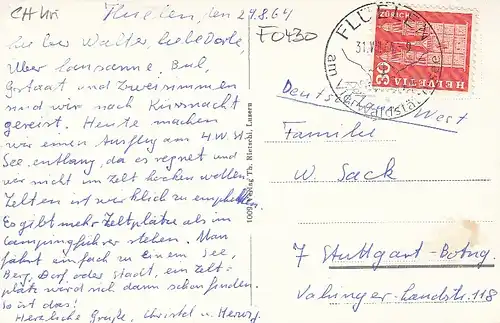 CH Uri
Flüelen, den 29.8.64
F0430
Lieber Walter, liebe Dorle,
Über Lausanne, Bul,
Gstaad und Zweisimmen
sind wir nach Küssnacht
gereist. Heute machen
wir einen Ausflug am 4.W.St
See, entlang, da es regnet und
wir nicht im Zelt hocken wollen.
Zelten ist wirklich zu empfehlen.
Es gibt mehr Zeltplätze als im
Campingführer stehen. Man
fährt einfach zu einem See,
Berg, Dorf oder Stadt, ein Zelt-
platz wird sich dann schon finden.
So ist das!
Herzliche Grüße, Christel u. Herwig
10007 Verlag Th. Rietschi, Luzern
FLÜELEN
am Vierwaldstättersee
ZÜRICH
30
HELVETIA
Deutschland West
Familie
W. Sack
7 Stuttgart-Botng.
Vaihinger-Landstr. 118